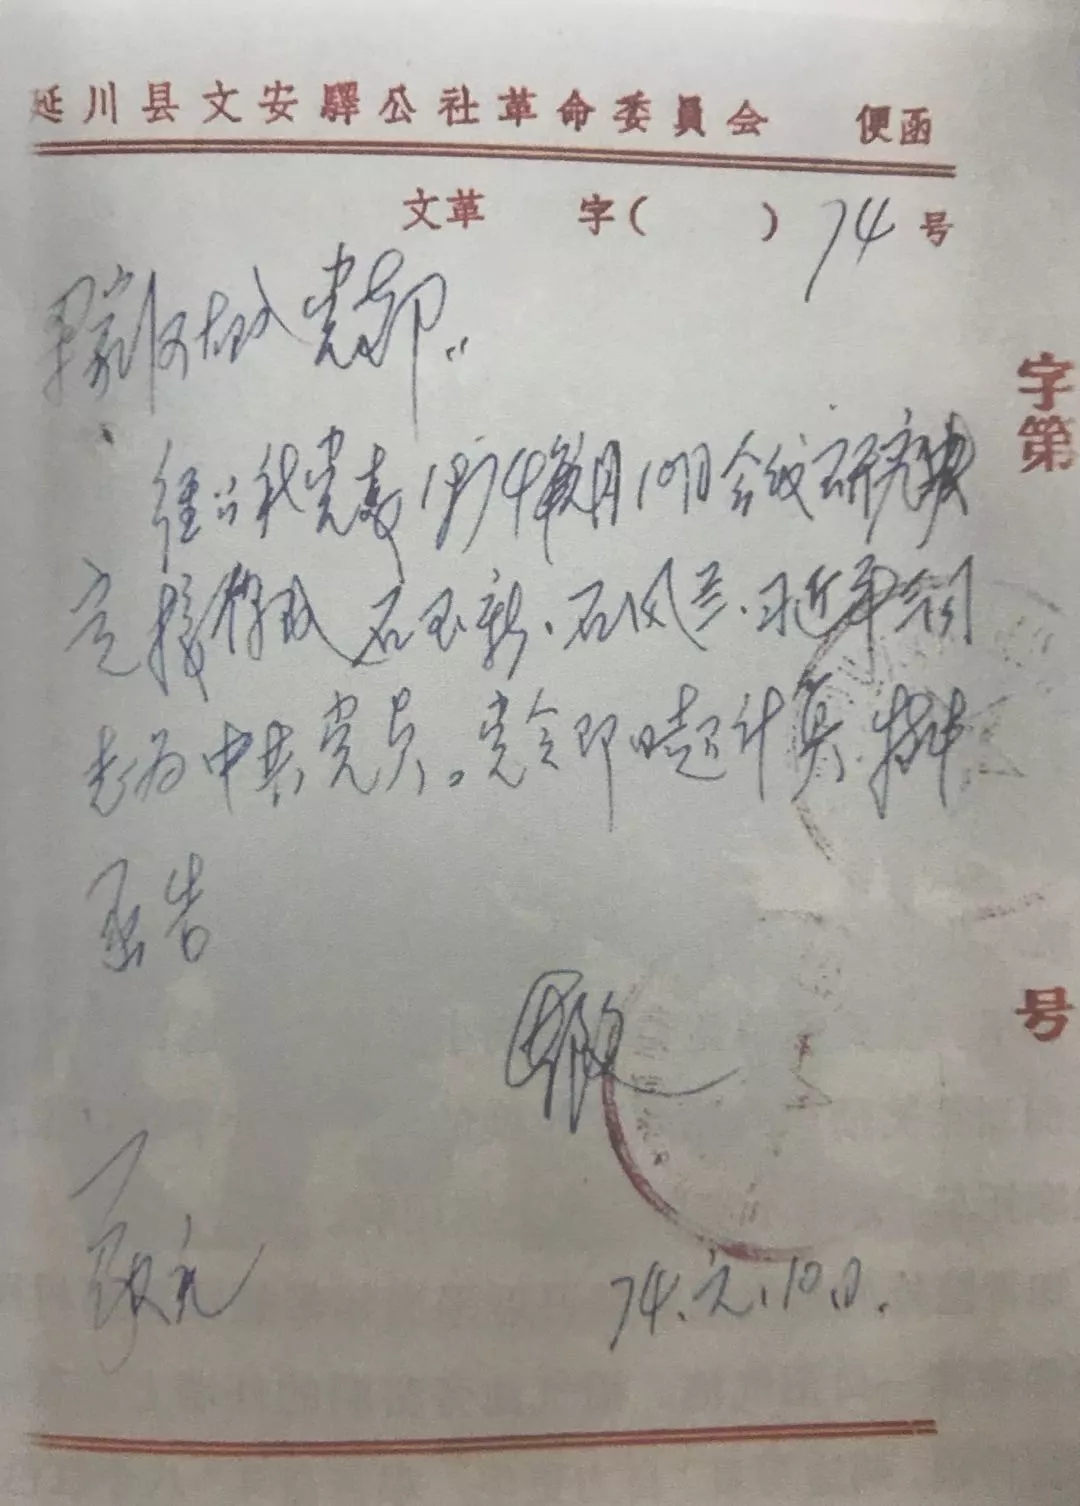 延川县文安驛公社革命委員会 便函
文革 字( ) 74 号
梁家河大队党支部:
经公社党委1974年元月10日会议研究决
定接收 石玉新、石凤兰、习近平三同
志为中共党员。党令即日起计算,特此
函告
致
74.元.10日.
字第
号